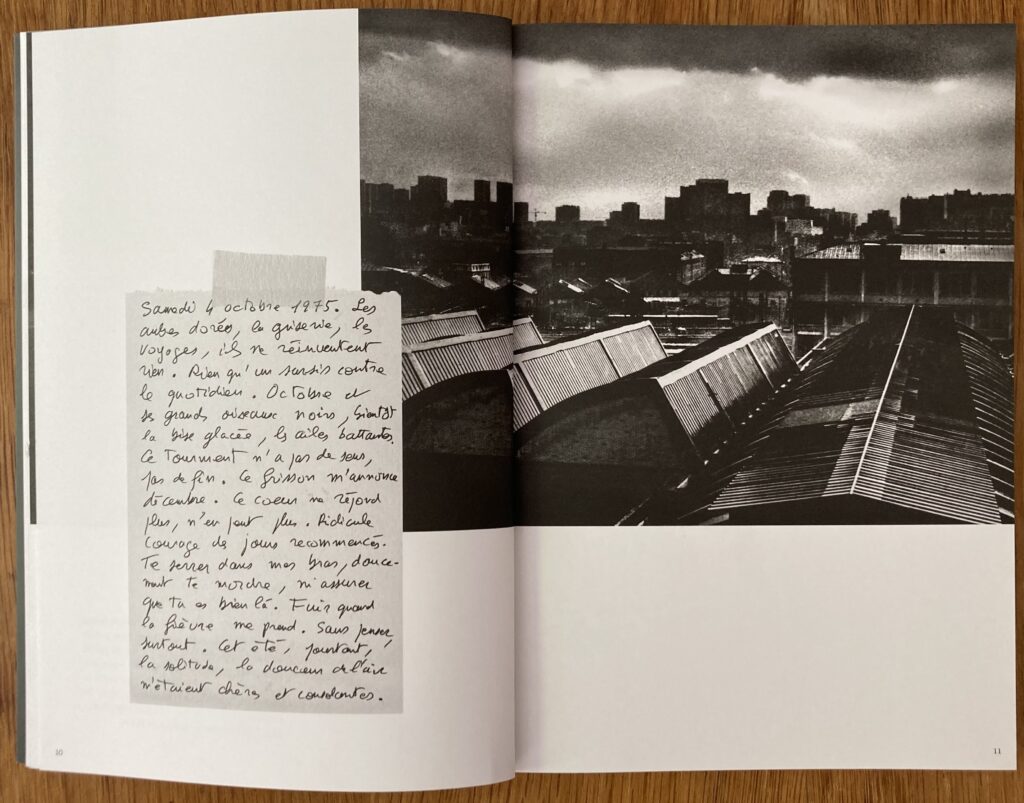 Samedi 4 octobre 1975. Les
aubes dorées, la griserie, les
voyages, ils ne réinventent
rien. Rien qu'un sursis contre
le quotidien. Octobre et
ses grands oiseaux noirs, bientôt
la bise glacée, les ailes battantes.
Ce tourment n'a pas de sens,
pas de fin. Ce frisson m'annonce
décembre. Ce coeur ne répond
plus, n'en peut plus. Ridicule
courage de jours recommencés.
Te serrer dans mes bras, douce-
ment te mordre, m'assurer
que tu es bien là. Fuir quand
la fièvre me prend. Sans penser,
surtout. Cet été, pourtant,
la solitude, la douceur de l'air
m'étaient chères et consolantes.
10
11